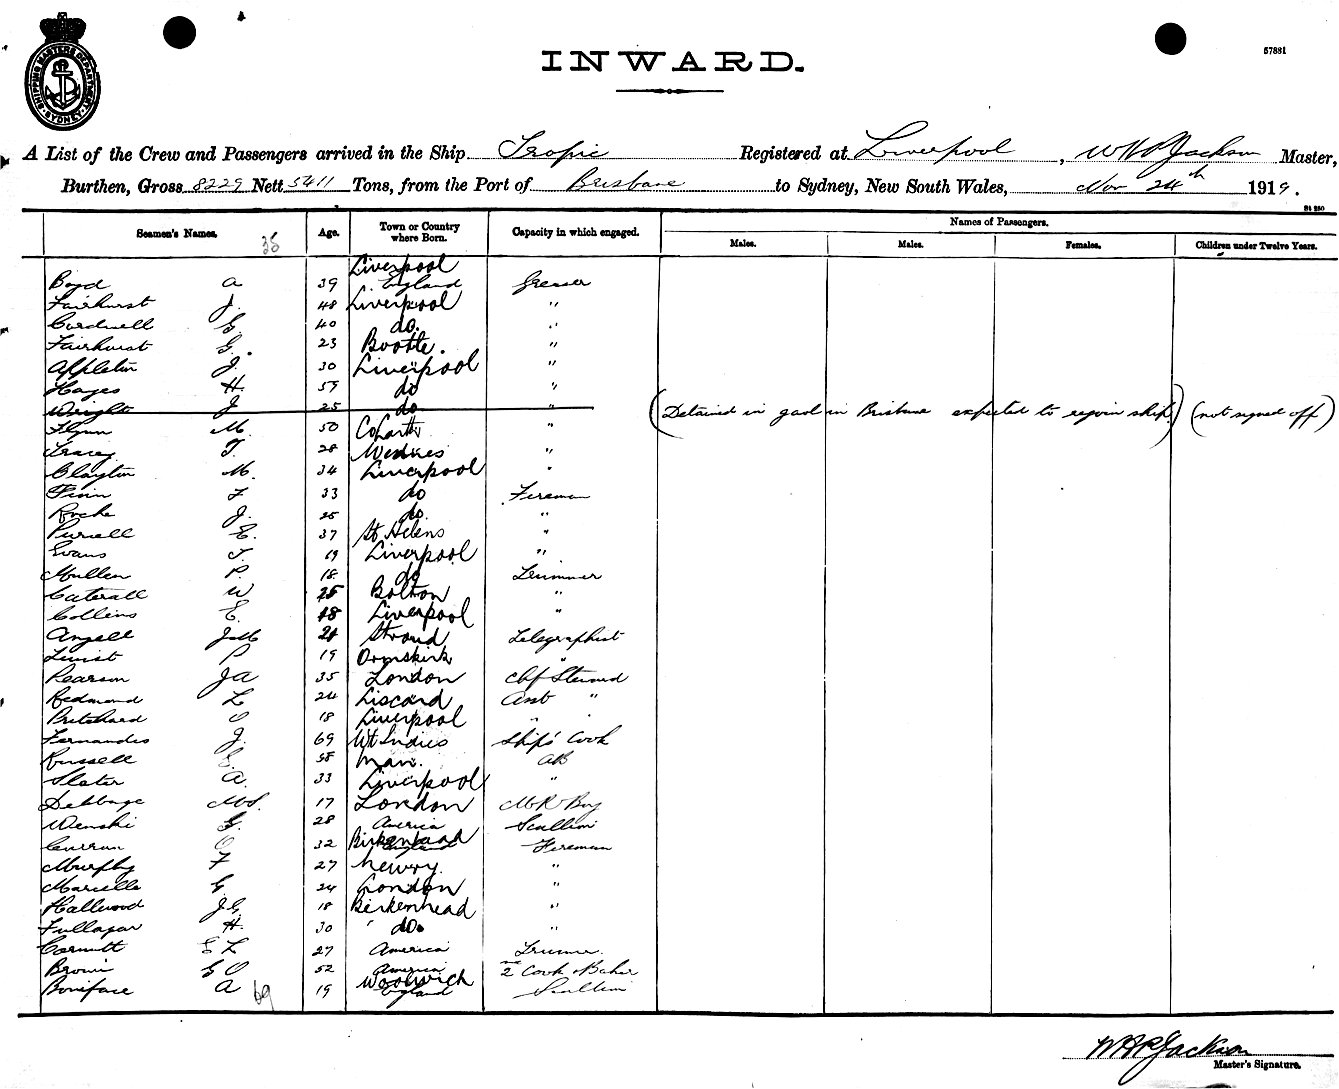 SHIPPING MASTERS DEPARTMENT SYDNEY
57881
INWARD.
A List of the Crew and Passengers arrived in the Ship Tropic Registered at Liverpool, WHP Jackson Master,
Burthen, Gross 8229 Nett 5411 Tons, from the Port of Brisbane to Sydney, New South Wales, Nov 24th 1919.
Seamen's Names. Age. Town or Country where Born. Capacity in which engaged. Names of Passengers.
Males. Males. Females. Children under Twelve Years.
Boyd A 39 Liverpool England Greaser
Fairhurst J. 48 Liverpool "
Cordwell G 40 do. "
Fairhurst G. 23 Bootle. "
Appleton J. 30 Liverpool "
Hayes H. 59 do "
Wright J 25 do " (Detained in gaol in Brisbane expected to rejoin ship) (not signed off)
Flynn M. 50 "
Tracey T. 28 "
Clayton M. 34 Liverpool "
Finn F 33 do Fireman
Roche J. 25 do. "
Purcell E. 37 St Helens "
Evans T. 19 Liverpool "
Mullen P. 18 do Trimmer
Caterall W Bolton "
Collins E. 18 Liverpool "
Angell JM 21 Stroud Telegraphist
P 19 Ormskirk "
Pearson JA 35 London Chf Steward
Redmond L 24 Liscard Asst "
Pritchard O 18 Liverpool " "
Fernandes J. 69 Wt Indies Ships' Cook
Russell Man. AB
Slater A. 33 Liverpool "
Debbage 17 London Boy
Wenski G. 28 America Scullion
Curran O 32 Birkenhead England Fireman
Murphy F 27 Newry. "
Marcelle G. 24 London "
Hallwood J.G. 18 Birkenhead "
Fullagar H. 30 do. "
E L 27 America Trimmer.
Brown G O 52 America 2nd Cook & Baker
Boniface A 19 Woolwich England Scullion
69
WHP Jackson
Master's Signature.